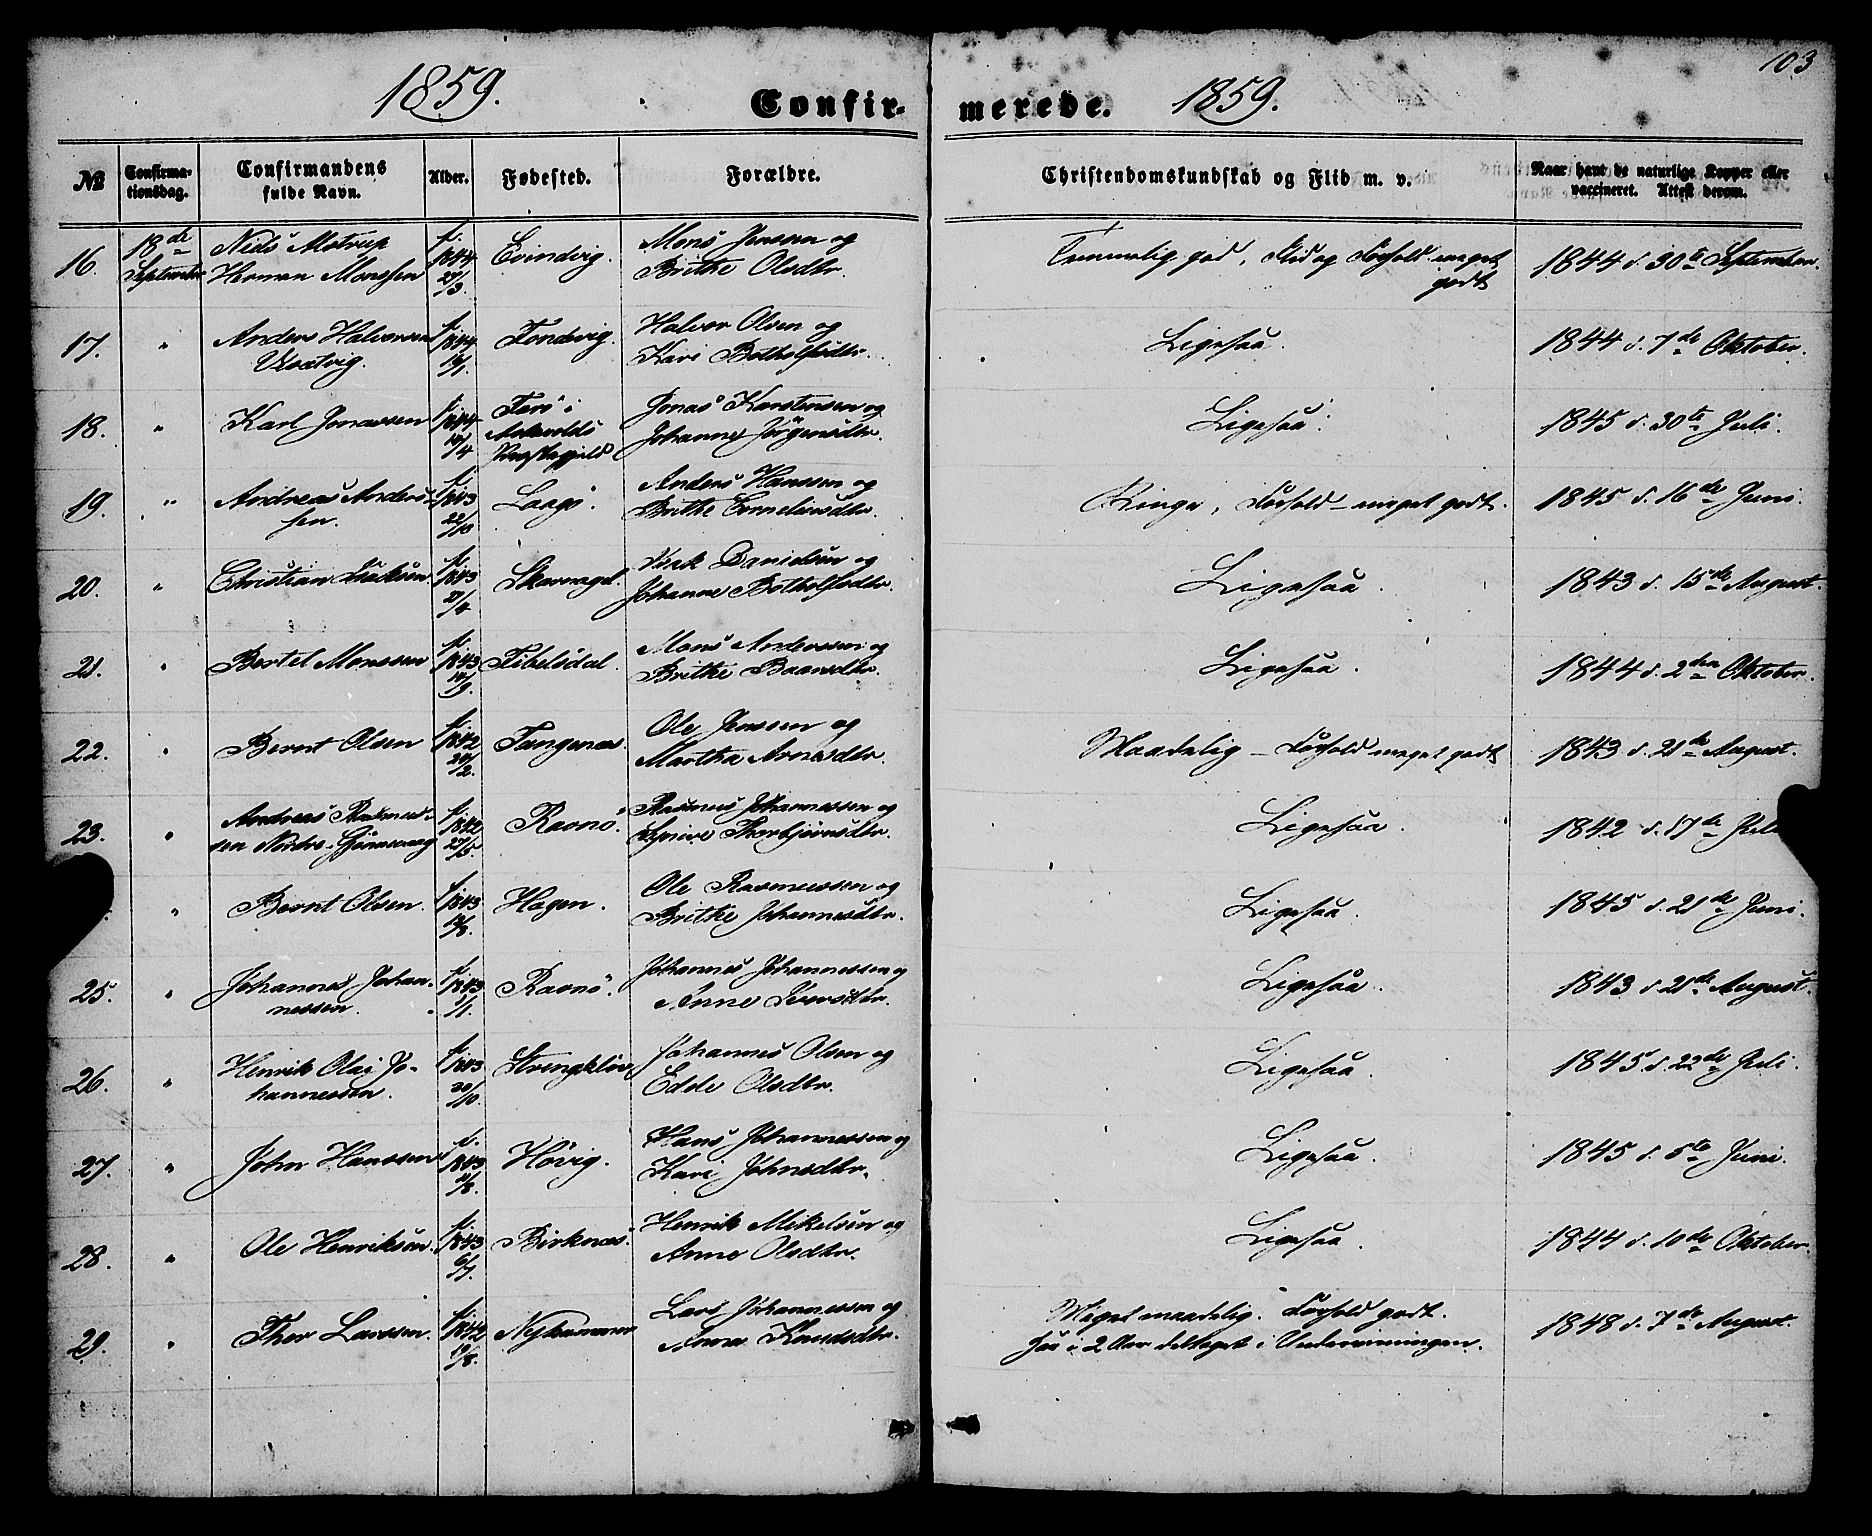 103
1859. Confir- merede. 1859.
№ Confirma- tionsdag. Confirmandens fulde Navn. Alder. Fødested. Forældre. Christendomskundskab og Flid m. v. Naar havt de naturlige Kopper eller vaccineret. Attest derom.
16. 18de September Niels Motrup Herman Monssen f. 1844 27/3. Evindvig. Mons Jenssen og Brithe Olsdtr. Temmelig god, Flid og Forhold meget godt 1844 d. 30te September.
17. " Anders Halvorsen f. 1844 Halvor Olsen og Kari Botholfsdtr. Ligesaa. 1844 d. 7de Oktober.
18. " Karl Jonassen f. 1844 i Askvolds Præstegjeld Jonas Karstensen og Johanne Jørgensdtr. Ligesaa. 1845 d. 30te Juli.
19. " Andreas Anders- sen. f. 1843 22/10 Anders Hanssen og Brithe Corneliusdtr. Ringe, Forhold meget godt. 1845 d. 16de Juni.
20. " Christian f. 1843 Skavraget. Danielsen og Johanne Botholfsdtr. Ligesaa. 1843 d. 15de August.
21. " Bertel Monssen f. 1843 Mons Anderssen og Brithe Ligesaa. 1844 d. 2den Oktober.
22. " Bernt Olsen f. 1842 Tangenæs. Ole Jenssen og Martha Arnesdtr. Maadelig - Forhold meget godt 1843 d. 21de August.
23. " Andreas Rasmus- sen Nordre f. 1842 Ravnø. Rasmus Johannessen og Thorbjørnsdtr. Ligesaa. 1842 d. 17de
" Bernt Olsen. f. 1843 Hagen. Ole Rasmussen og Brithe Johannesdtr. Ligesaa. 1845 d. 21de Juni.
25. " Johannes Johan- nessen. f. 1843 Ravnø. Johannes Johannessen og Anne Iversdtr. Ligesaa. 1843 d. 21de August.
26. " Henrik Olai Jo- hannessen. f. 1843 20/10. Johannes Olsen og Edele Olsdtr. Ligesaa. 1845 d. 22de Juli.
27. " John Hanssen f. 1843 Høvig. Hans Johannessen og Kari Johnsdtr. Ligesaa. 1845 d. 5te Juni.
28. " Ole Henriksen. f. 1843 Birknæs. Henrik Mikelsen og Anne Olsdtr. Ligesaa. 1844 d. 10de Oktober.
29. " Thor Larssen. f. 1842 19/8. Nyhammer Lars Johannessen og Anna Knudsdtr. Meget maadelig. Forhold godt. har i 2 Aar deltaget i Underviisningen. 1848 d. 7de August.